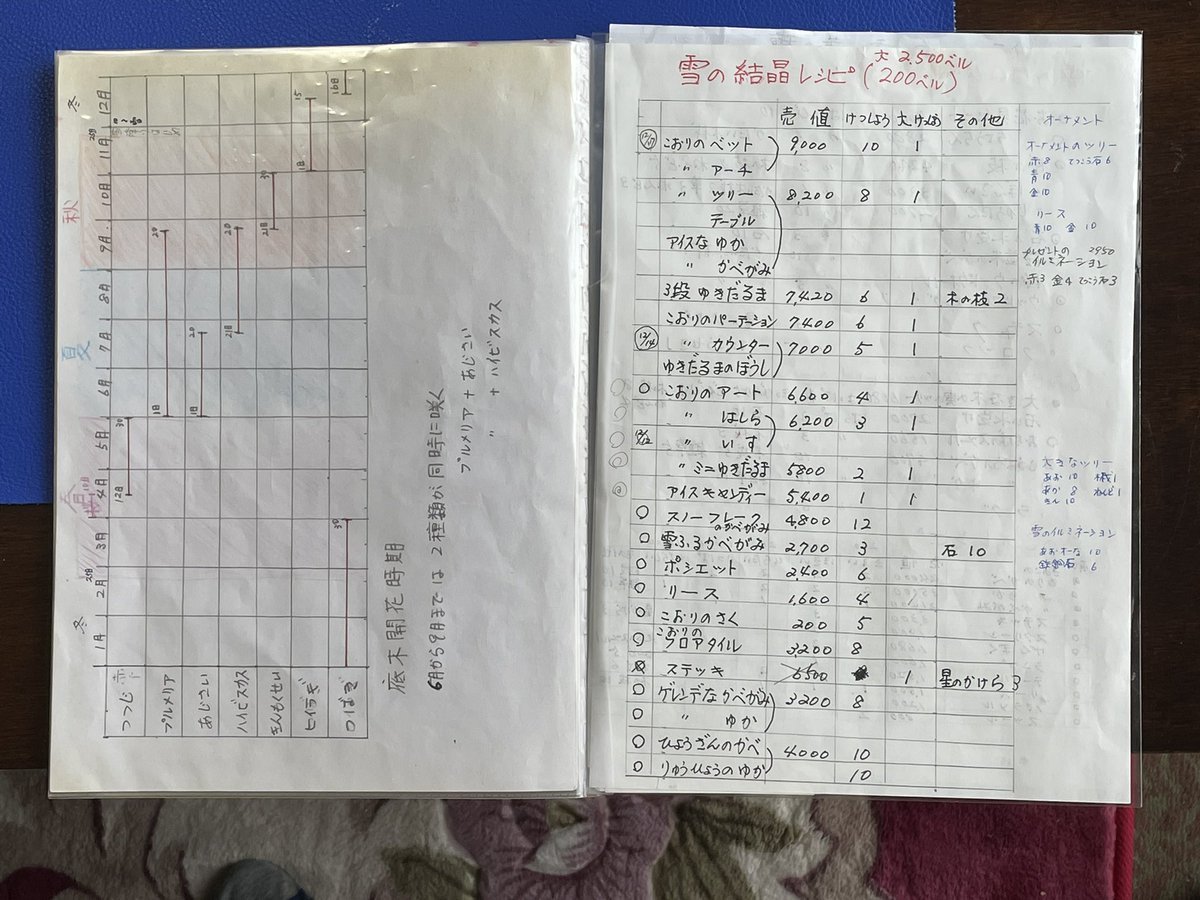 冬
秋
夏
春
冬
12月
11月
10月
9月
8月
7月
6月
5月
4月
3月
2月
1月
つつじ
12日
30
プルメリア
1日
20
あじさい
1日
20
ハイビスカス
21日
20
きんもくせい
21日
30
ヒイラギ
1日
15
つばき
30
16日
底木開花時期
6月から9月までは2種類が同時に咲く
プルメリア+あじさい
〃 +ハイビスカス
雪の結晶レシピ(大 2,500ベル
200ベル)
売値 けっしょう 大けっしょう その他
12/17 こおりのベット 9,000 10 1
〃 アーチ
〃 ツリー 8,200 8 1
テーブル
アイスなゆか
〃 かべがみ
3段ゆきだるま 7,420 6 1 木の枝2
こおりのパーテーション 7400 6 1
12/14 〃 カウンター 7000 5 1
ゆきだるまのぼうし
○ こおりのアート 6,600 4 1
〃 はしら 6,200 3 1
12/12 〃 いす
〃 ミニゆきだるま 5800 2 1
アイスキャンディー 5,400 1 1
○ スノーフレークのかべがみ 4800 12
○ 雪ふるかべがみ 2,700 3 石10
○ ポシェット 2400 6
○ リース 1,600 4
○ こおりのさく 200 5
○ こおりのフロアタイル 3,200 8
ステッキ 6500 1 星のかけら3
○ ゲレンデなかべがみ 3200 8
○ 〃 ゆか
○ ひょうざんのかべ 4,000 10
○ りゅうひょうのゆか 10
オーナメント
オーナメントのツリー
赤8 てっこう石6
青10
金10
リース
青10 金10
プレゼントの 2950
イルミネーション
赤3 金4 てっこう石3
大きなツリー
あお 10
あか 8
きん 10
雪のイルミネーション
あおオーナ 10
鉄鉱石 6